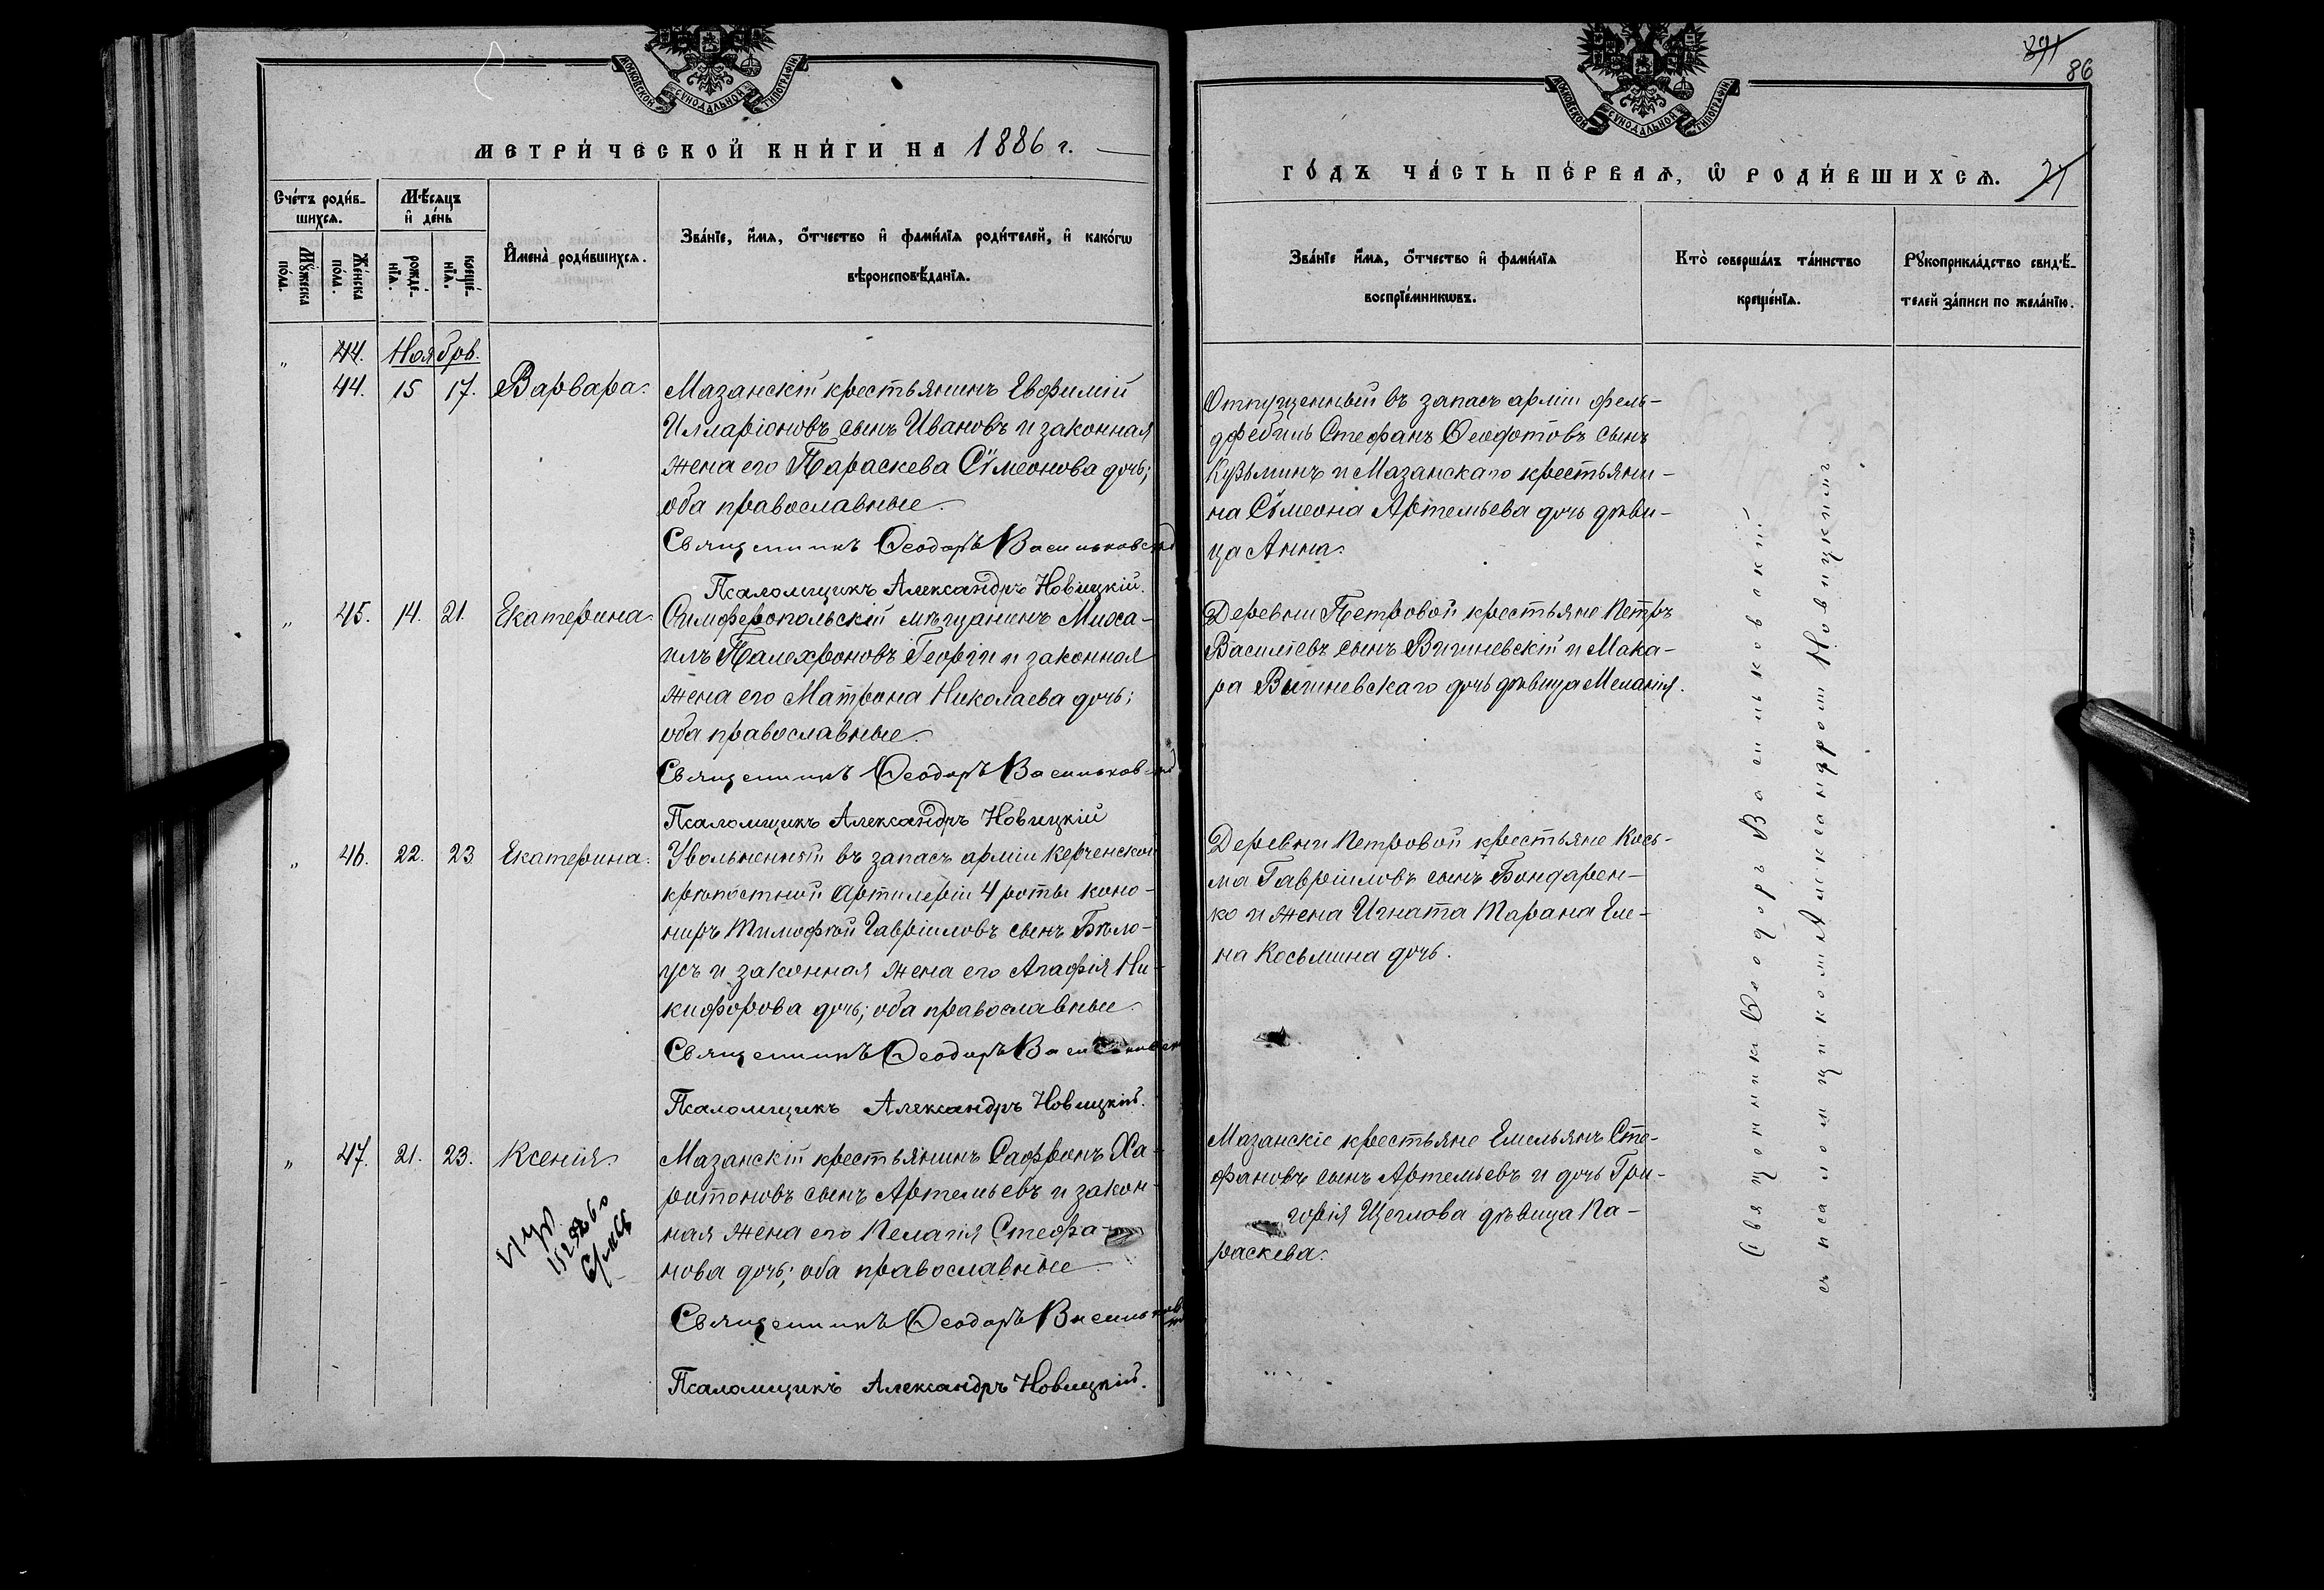 МОСКОВСКОЙ СУНОДАЛЬНОЙ ТИПОГРАФІИ
МЕТРИ́ЧЕСКОЙ КНИ́ГИ НА 1886 г.
Сче́тъ роди́в-
шихся.
Мѣ́сяцъ
и҆ де́нь
Мꙋ́жеска
по́ла.
Же́нска
по́ла.
рожде́-
нїѧ.
креще́-
нїѧ.
И҆мена̀ роди́вшихсѧ.
Зва́нїе, и҆́мѧ, ѻ҆́тчество и҆ фами́лїѧ роди́телей, и҆ како́гѡ
вѣроисповѣ́данїѧ.
" 44. Ноябрь.
44. 15 17. Варвара.
Мазанскій крестьянинъ Евфимій
Илларіоновъ сынъ Ивановъ и законная
жена его Параскева Сѵмеонова дочь;
оба православные.
Священникъ Ѳеодоръ Васильковскій
Псаломщикъ Александръ Новицкій.
" 45. 14. 21. Екатерина.
Симферопольскій мѣщанинъ Миха-
илъ Палехроновъ Георги и законная
жена его Матрона Николаева дочь;
оба православные.
Священникъ Ѳеодоръ Васильковскій
Псаломщикъ Александръ Новицкій
" 46. 22. 23 Екатерина.
Увольненный въ запасъ арміи Керченской
крѣпостной Артилеріи 4 роты коно-
ниръ Тимофей Гавріиловъ сынъ Бѣло-
усъ и законная жена его Агафія Ни-
кифорова дочь; оба православные.
Священникъ Ѳеодоръ Васильковскій
Псаломщикъ Александръ Новицкій.
" 47. 21. 23. Ксенія.
Мазанскій крестьянинъ Сафронъ Ха-
ритоновъ сынъ Артемьевъ и закон-
ная жена его Пелагія Стефа-
нова дочь; оба православные
Священникъ Ѳеодоръ Васильков
Псаломщикъ Александръ Новицкій.
МОСКОВСКОЙ СУНОДАЛЬНОЙ ТИПОГРАФІИ
86
ГО́ДЪ ЧА́СТЬ ПЕ́РВАѦ, Ѡ҆ РОДИ́ВШИХСѦ.
Зва́нїе и҆́мѧ, ѻ҆́тчество и҆ фами́лїѧ
воспрїе́мникѡвъ.
Кто̀ соверша́лъ та́инство
креще́нїѧ.
Рꙋкоприкла́дство свидѣ́-
телей за́писи по жела́нїю.
Отпущенный въ запасъ арміи фель-
дфебиль Стефанъ Ѳеодотовъ сынъ
Кузьминъ и Мазанскаго крестьяни-
на Сѵмеона Артемьева дочь дѣви-
ца Анна.
Деревни Петровой крестьяне Петръ
Василіевъ сынъ Вишневскій и Мака-
ра Вишневскаго дочь дѣвица Меланія.
Деревни Петровой крестьяне Кось-
ма Гавріиловъ сынъ Бондарен-
ко и жена Игната Тарана Еле-
на Косьмина дочь.
Мазанскіе крестьяне Емельянъ Сте-
фановъ сынъ Артемьевъ и дочь Гри-
горія Щеглова дѣвица Па-
раскева.
Священникъ Ѳеодоръ Васильковскій
съ псаломщикомъ Александромъ Новицкимъ